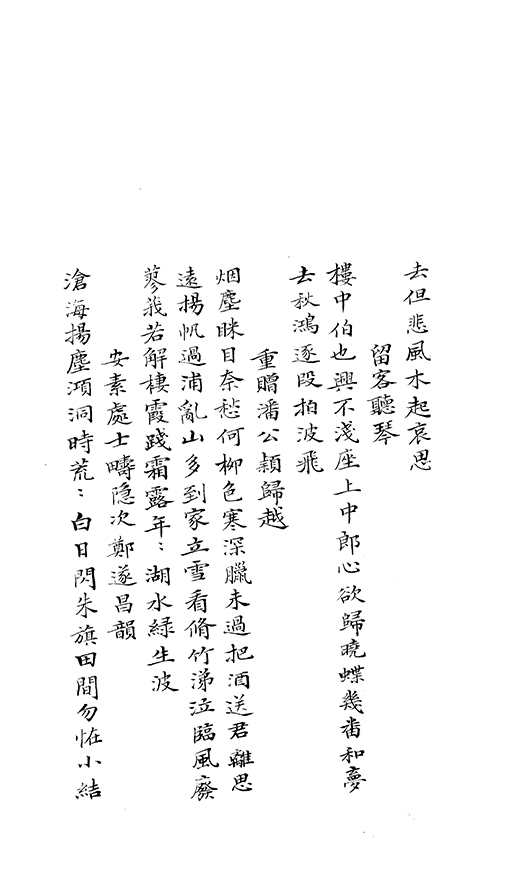 去但悲風木起哀思
留客聽琴
樓中伯也興不淺座上中郎心欲歸曉蝶幾畨和夢
去秋鴻逐段拍波飛
重贈潘公穎歸越
烟塵眯目奈愁何柳色寒深臘未過把酒送君離思
遠揚帆過浦亂山多到家立雪看脩竹涕泣臨風廢
蓼莪若解棲霞踐霜露年：湖水緑生波
安素處士疇隐次鄭遂昌韻
滄海揚塵澒洞時荒：白日閃朱旗田間勿恠小結